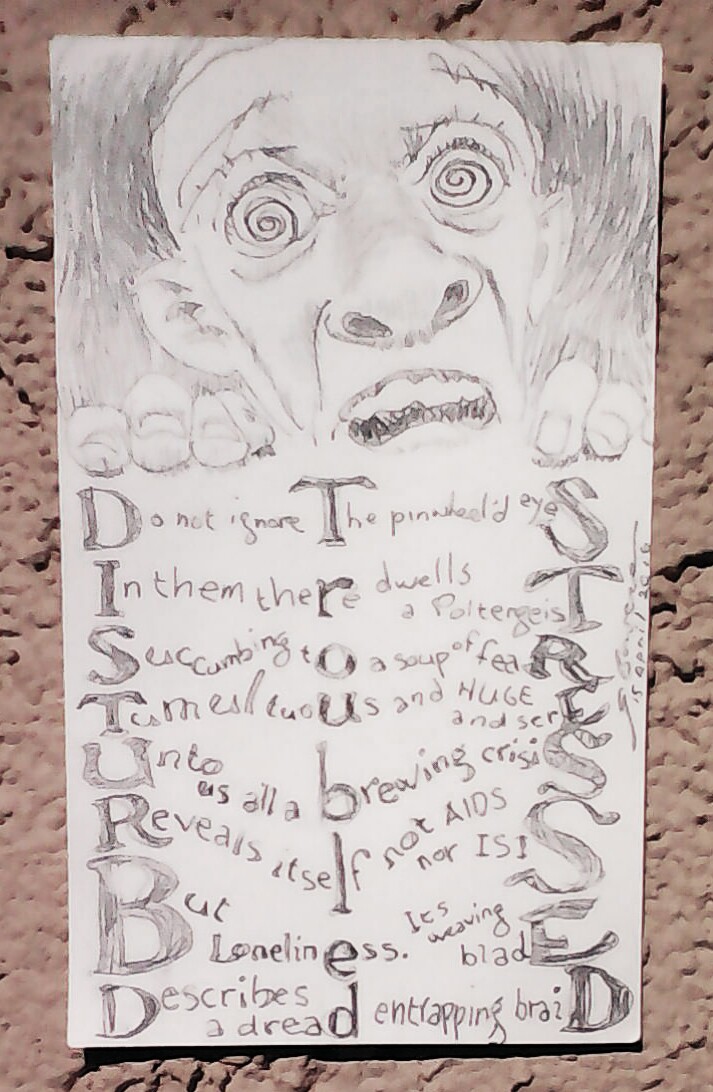 Do not ignore The pinwheel'd eyeS
In them there dwells a PoltergeisT
Succumbing to a soup of feaR
Tumesltuous and HUGE and serE
Unto us all a brewing crisiS
Reveals itself not AIDS nor ISIS
But Loneliness. It's weaving bladE
Describes a dread entrapping braiD
15 April 2016